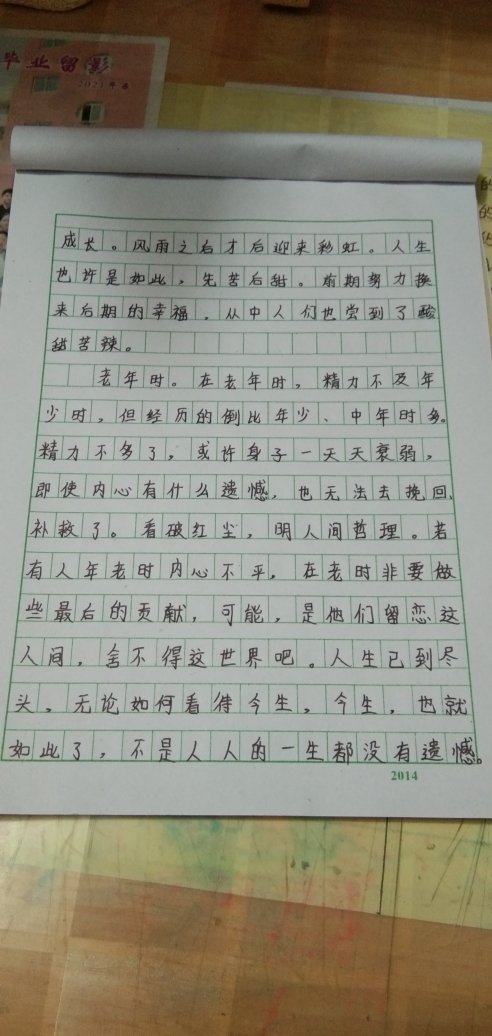 毕业留影
2021年春
成长。风雨之后才后迎来彩虹。人生
也许是如此，先苦后甜。前期努力换
来后期的幸福，从中人们也尝到了酸
甜苦辣。
老年时。在老年时，精力不及年
少时，但经历的倒比年少、中年时多。
精力不多了，或许身子一天天衰弱，
即使内心有什么遗憾，也无法去挽回、
补救了。看破红尘，明人间哲理。若
有人年老时内心不平，在老时非要做
些最后的贡献，可能，是他们留恋这
人间，舍不得这世界吧。人生已到尽
头，无论如何看待今生，今生，也就
如此了，不是人人的一生都没有遗憾。
2014